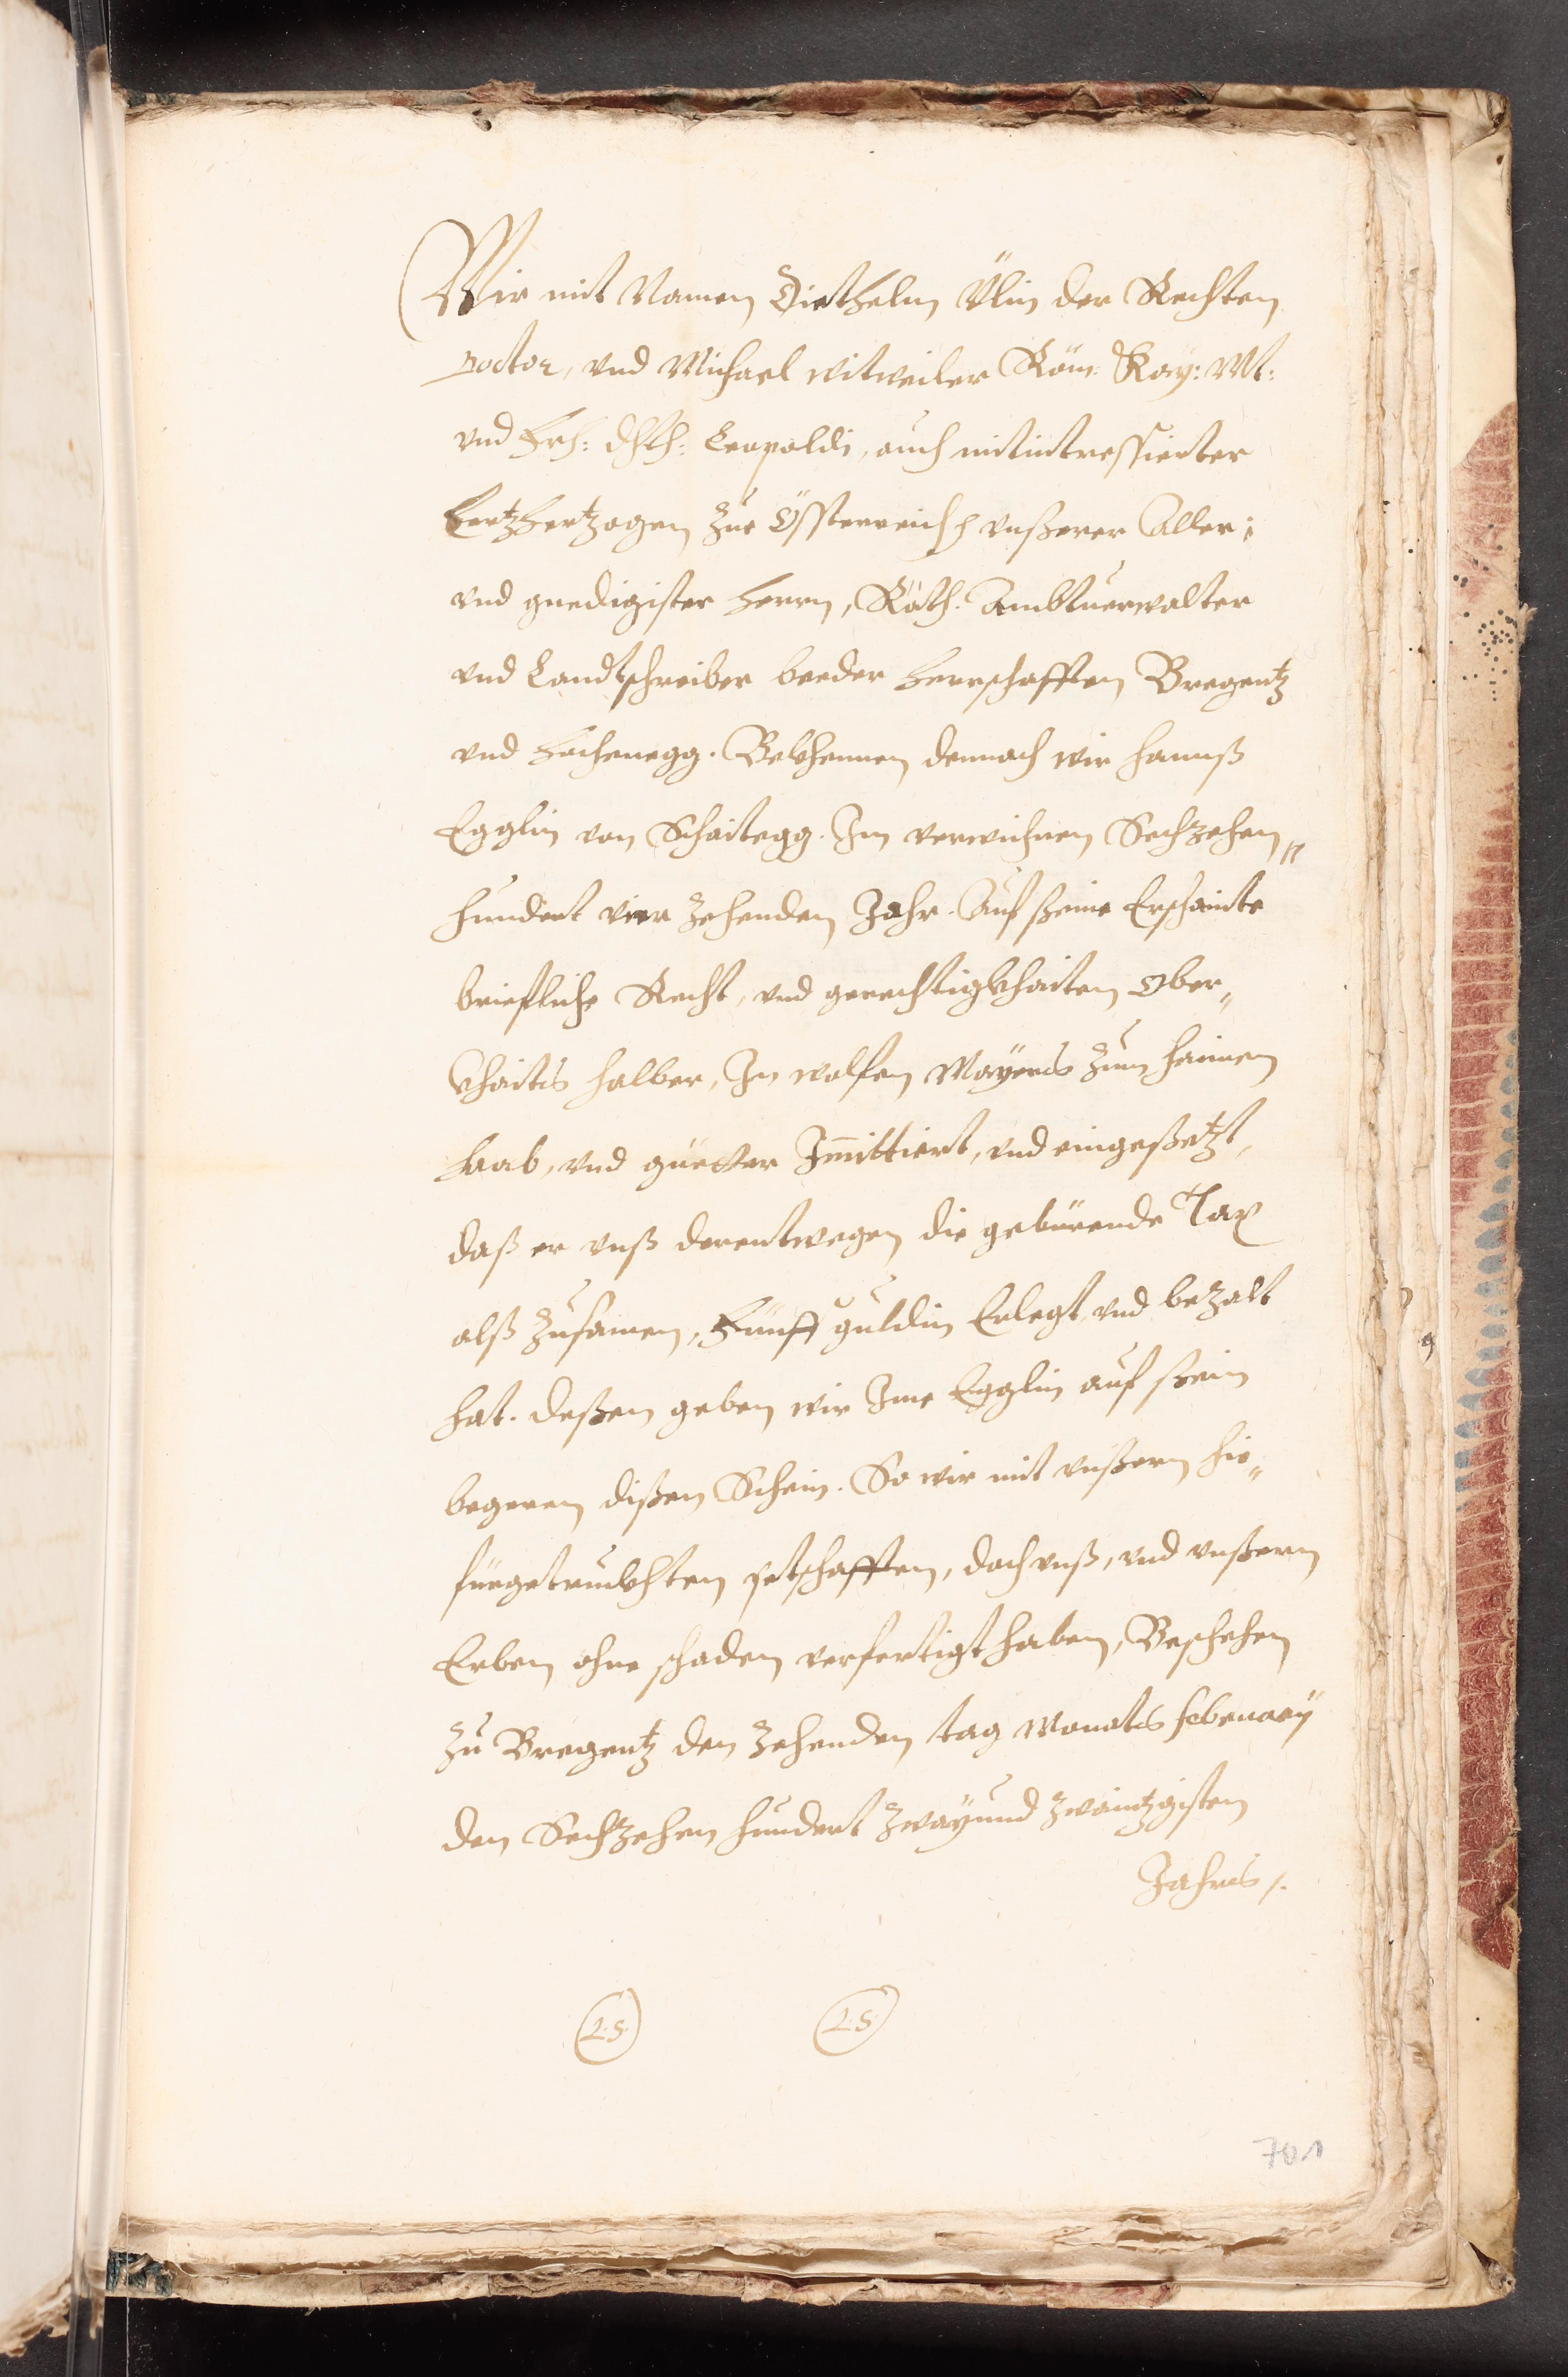 Wir mit Namen Diethelm Ülin der Rechten
Doctor, vnd Michael witweiler Röm: Kay: Mt:
vnd Frh: dhlh: Leopoldi, auch mitintressierter
Ertzhertzogen zue Össterreich vnßerer Aller:
vnd gnedigister herrn, Räth. Ambtuerwalter
vnd Landtschreiber beeder herrschafften Bregentz
vnd Hochenegg. Bekhennen demnach wir hannß
Egglin von Schaitegg. Im verwichnen Sechzehen„
hundert vier zehenden Jahr. Auf seine Erschainte
briefliche Recht, vnd gerechtigkhaiten Ober„
khaits halber, In wolfen Mayers zum hainen
haab, vnd güetter Immittiert, vnd eingeßetzt,
daß er vnß derentwegen die gebürende Tax
alß zusamen, Fünff guldin Erlegt vnd bezalt
hat. deßen geben wir Ime Egglin auf sein
begeren dißen Schein. So wir mit vnßern hie„
fürgetruckhten petschafften, doch vnß, vnd vnßern
Erben ohne schaden verfertigt haben, Beschehen
zu Bregentz den zehenden tag Monats februarÿ
den Sechzehen hundert zwayund zwaintzigisten
Jahrs /.
L.S. L.S.
701